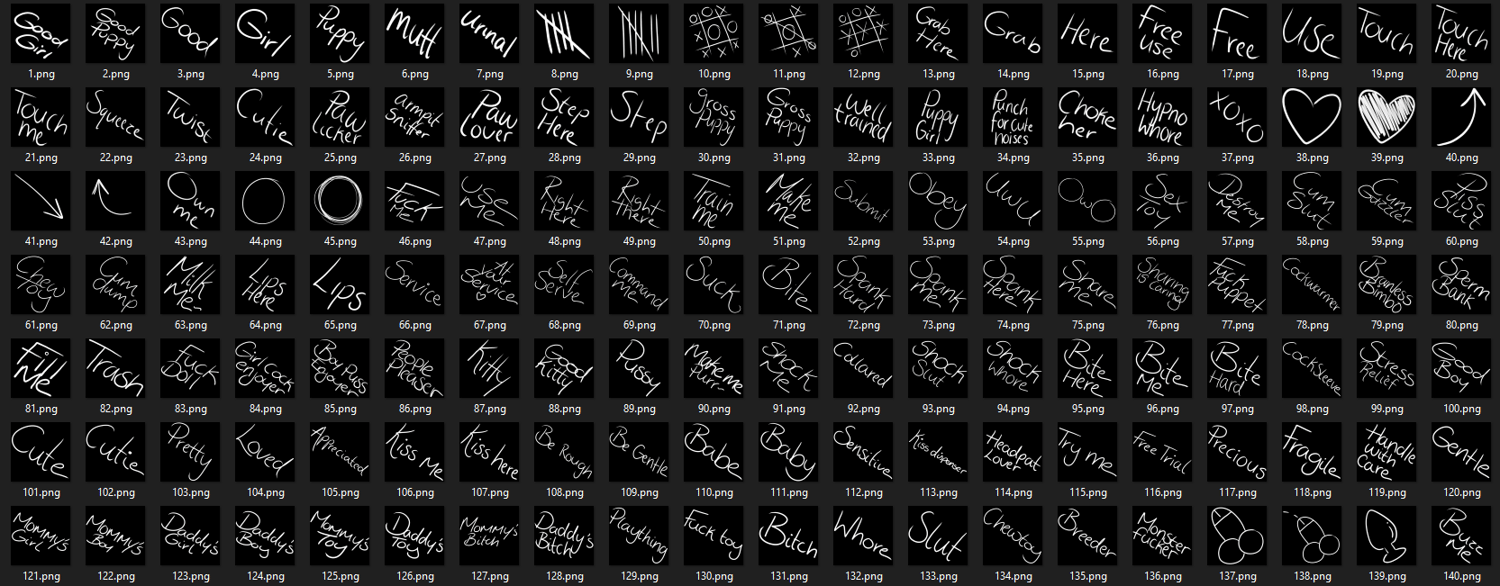 Good
Girl
1.png
Good
Puppy
2.png
Good
3.png
Girl
4.png
Puppy
5.png
Mutt
6.png
urinal
7.png
8.png
9.png
10.png
11.png
12.png
Grab
Here
13.png
Grab
14.png
Here
15.png
Free
Use
16.png
Free
17.png
Use
18.png
Touch
19.png
Touch
Here
20.png
Touch
me
21.png
Squeeze
22.png
Twist
23.png
Cutie
24.png
Paw
licker
25.png
armpit
Sniffer
26.png
Paw
lover
27.png
Step
Here
28.png
Step
29.png
gross
Puppy
30.png
Gross
Puppy
31.png
Well
trained
32.png
Puppy
Girl
33.png
Punch
for cute
noises
34.png
Choke
her
35.png
Hypno
Whore
36.png
XOXO
37.png
38.png
39.png
40.png
41.png
42.png
Own
me
43.png
44.png
45.png
Fuck
Me
46.png
Use
Me
47.png
Right
Here
48.png
Right
There
49.png
Train
me
50.png
Make
me
51.png
Submit
52.png
Obey
53.png
UwU
54.png
OwO
55.png
Sex
Toy
56.png
Destroy
Me
57.png
Cum
Slut
58.png
Cum
Guzzler
59.png
Piss
Slut
60.png
Chew
Toy
61.png
Cum
dump
62.png
Milk
Me~
63.png
Lips
Here
64.png
Lips
65.png
Service
66.png
At
Your
Service
67.png
Self
Serve
68.png
Command
Me
69.png
Suck
70.png
Bite
71.png
Spank
Hard
72.png
Spank
Me
73.png
Spank
Here
74.png
Share
Me
75.png
Sharing
is Caring!
76.png
Fuck
Puppet
77.png
Cockwarmer
78.png
Brainless
Bimbo
79.png
Sperm
Bank
80.png
Fill
Me
81.png
Trash
82.png
Fuck
Doll
83.png
Girl cock
enjoyer
84.png
Boy Puss
Enjoyer
85.png
People
Pleaser
86.png
Kitty
87.png
Good
Kitty
88.png
Pussy
89.png
Make me
Purr
90.png
Shock
Me
91.png
Collared
92.png
Shock
Slut
93.png
Shock
Whore
94.png
Bite
Here
95.png
Bite
Me
96.png
Bite
Hard
97.png
Cocksleeve
98.png
Stress
Relief
99.png
Good
Boy
100.png
Cute
101.png
Cutie
102.png
Pretty
103.png
Loved
104.png
Appreciated
105.png
Kiss me
106.png
Kiss here
107.png
Be Rough
108.png
Be Gentle
109.png
Babe
110.png
Baby
111.png
Sensitive
112.png
Kiss dispenser
113.png
Headpat
Lover
114.png
Try me
115.png
Free Trial
116.png
Precious
117.png
Fragile
118.png
Handle
With
Care
119.png
Gentle
120.png
Mommy's
Girl
121.png
Mommy's
Boy
122.png
Daddy's
Girl
123.png
Daddy's
Boy
124.png
Mommy's
Toy
125.png
Daddy's
Toy
126.png
Mommy's
Bitch
127.png
Daddy's
Bitch
128.png
Plaything
129.png
Fuck toy
130.png
Bitch
131.png
Whore
132.png
Slut
133.png
Chewtoy
134.png
Breeder
135.png
Monster
Fucker
136.png
137.png
138.png
139.png
Buzz
Me
140.png